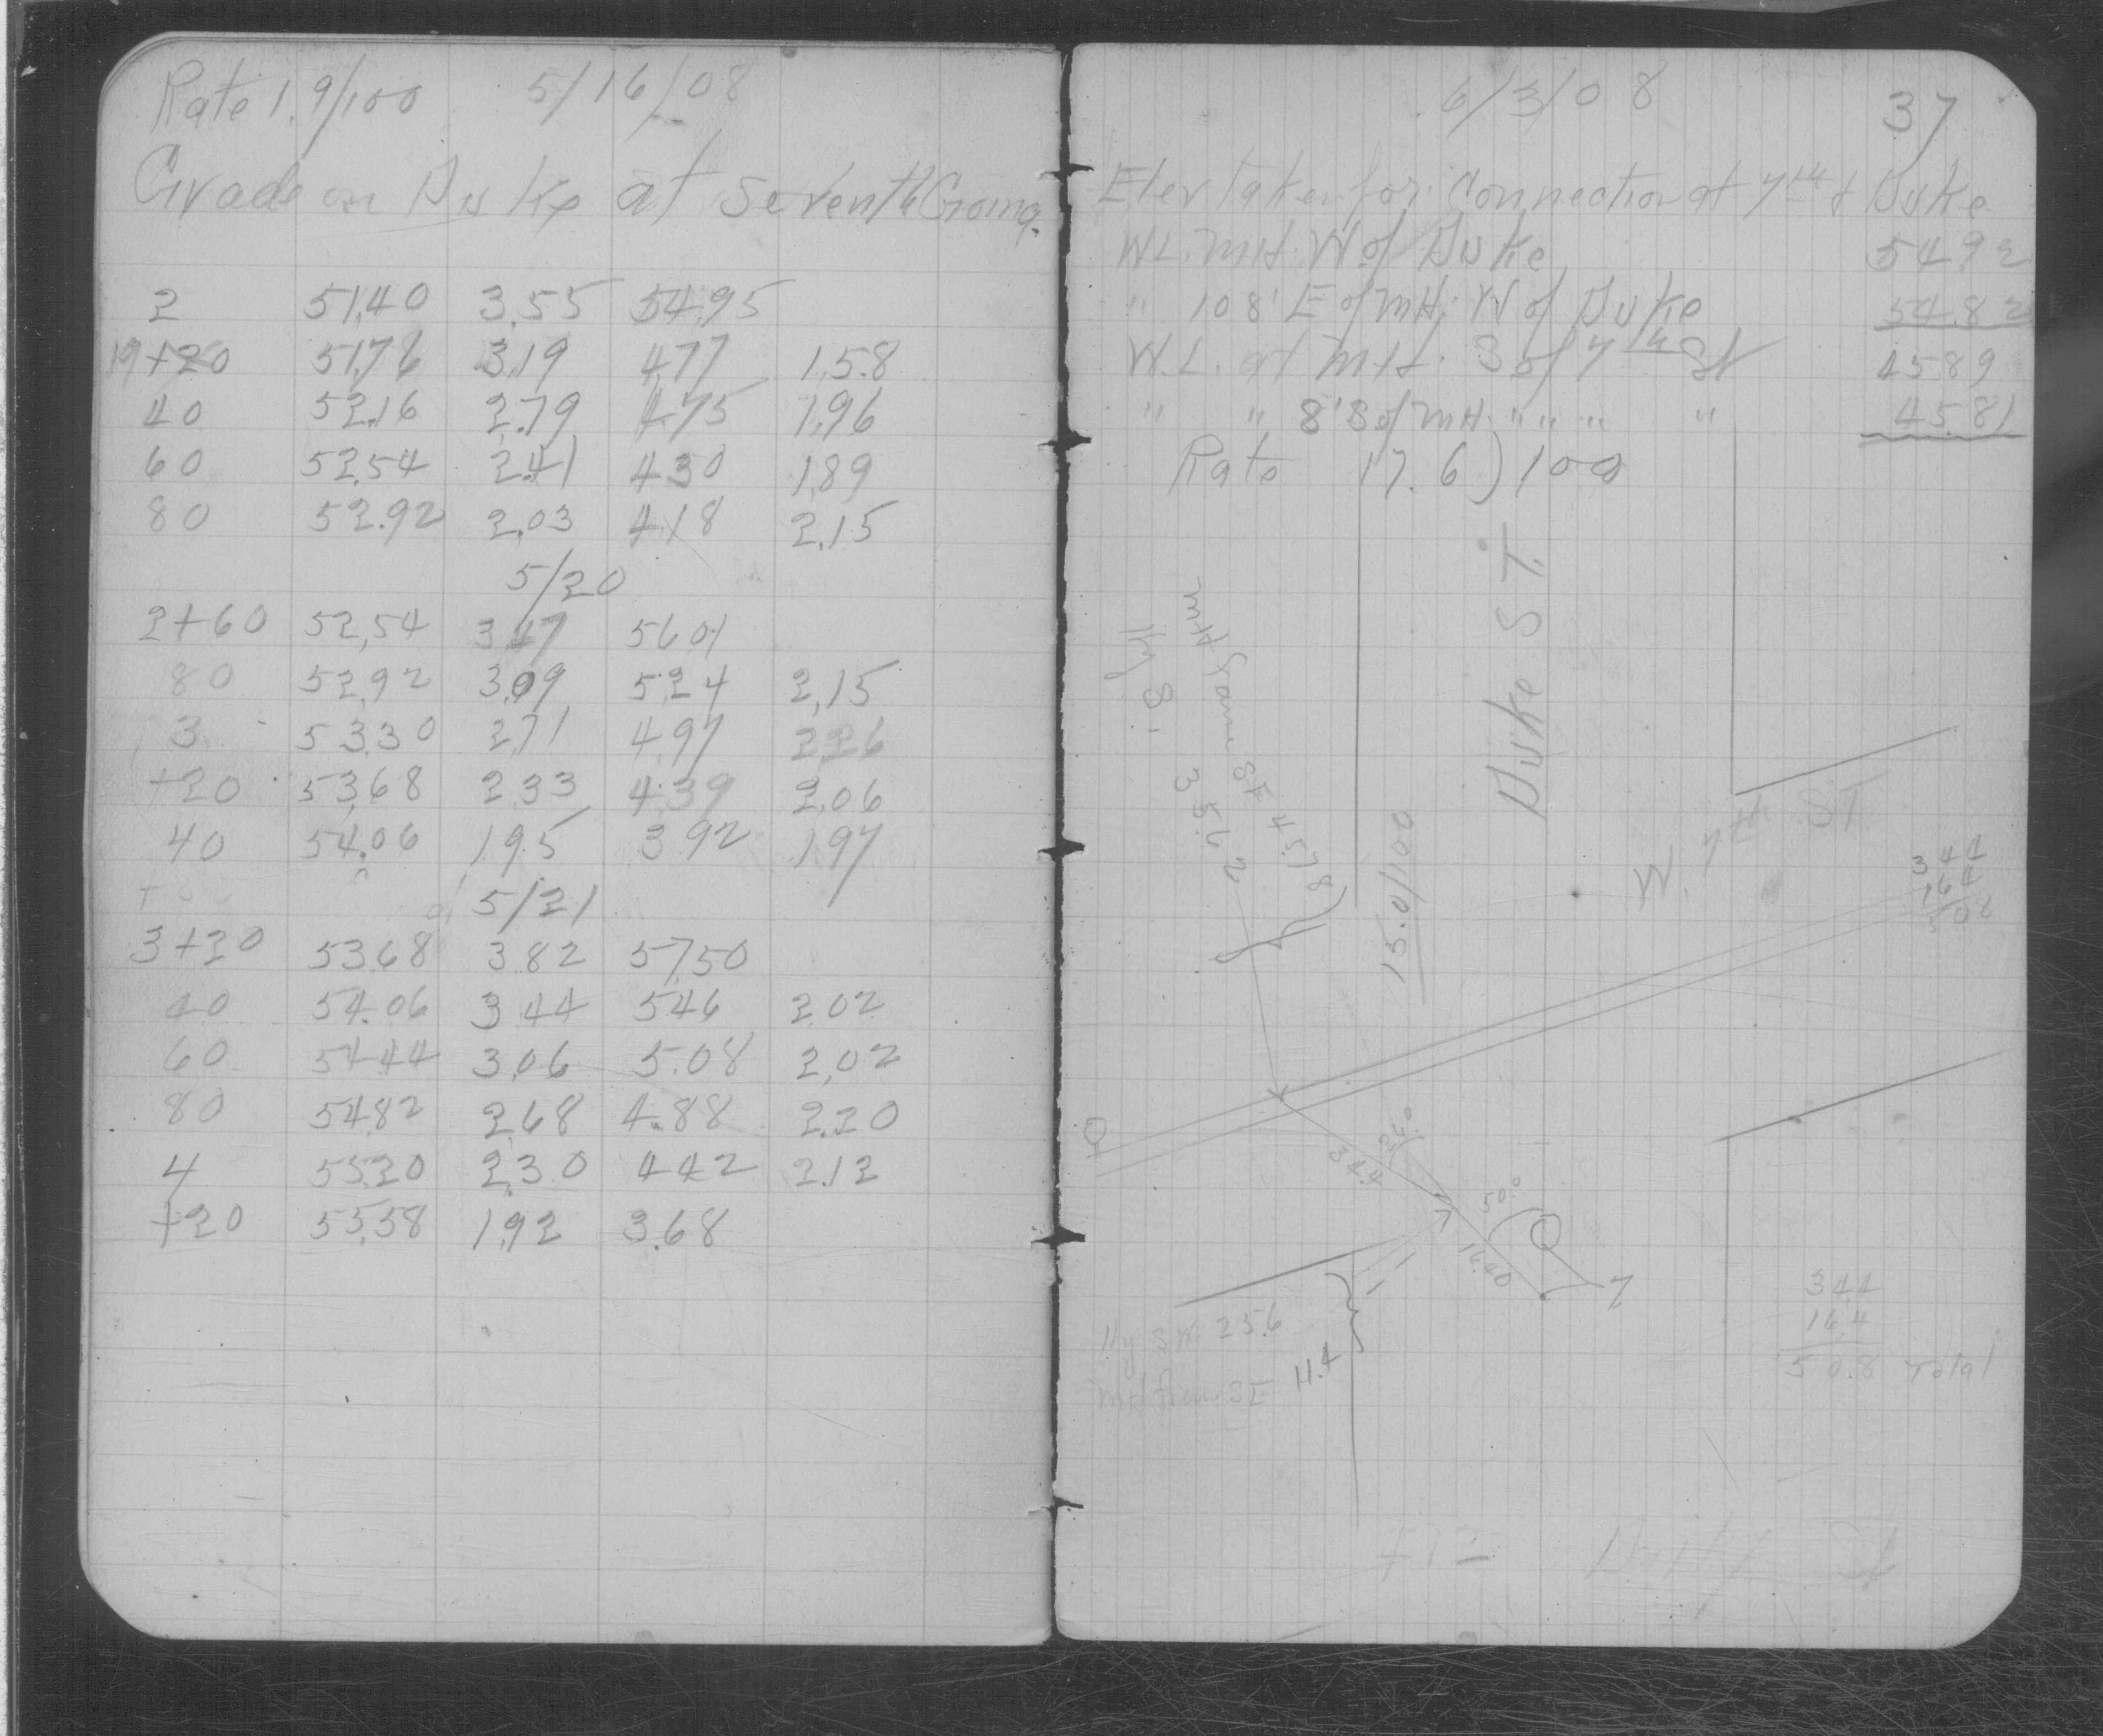 Rate 1.9/100 5/16/08
Grade on Duke at Seventh Going.
2 51.40 3.55 54.95
19+20 51.76 3.19 4.77 1.58
40 52.16 2.79 4.75 1.96
60 52.54 2.41 4.30 1.89
80 52.92 2.03 4.18 2.15
5/20
2+60 52.54 3.47 56.01
80 52.92 3.09 5.24 2.15
3 53.30 2.71 4.97 2.26
+20 53.68 2.33 4.39 2.06
40 54.06 1.95 3.92 1.97
5/21
3+20 53.68 3.82 57.50
40 54.06 3.44 5.46 2.02
60 54.44 3.06 5.08 2.02
80 54.82 2.68 4.88 2.20
4 55.20 2.30 4.42 2.12
+20 55.58 1.92 3.68
6/3/08 37
Elev taken for Connection at 7th & Duke
W.L. MH W of Duke 54.92
" 108' E of MH. W of Duke 54.82
W.L. at MH. S of 7th St 45.89
" " 8' S of MH. " " " " 45.81
Rate 17.6)100
Duke ST.
15.0/100
W. 7th ST
344
164
50.0
34.4
26.0
16.40
Hy S.W. 25.6
11.4
34.4
16.4
50.8 Total